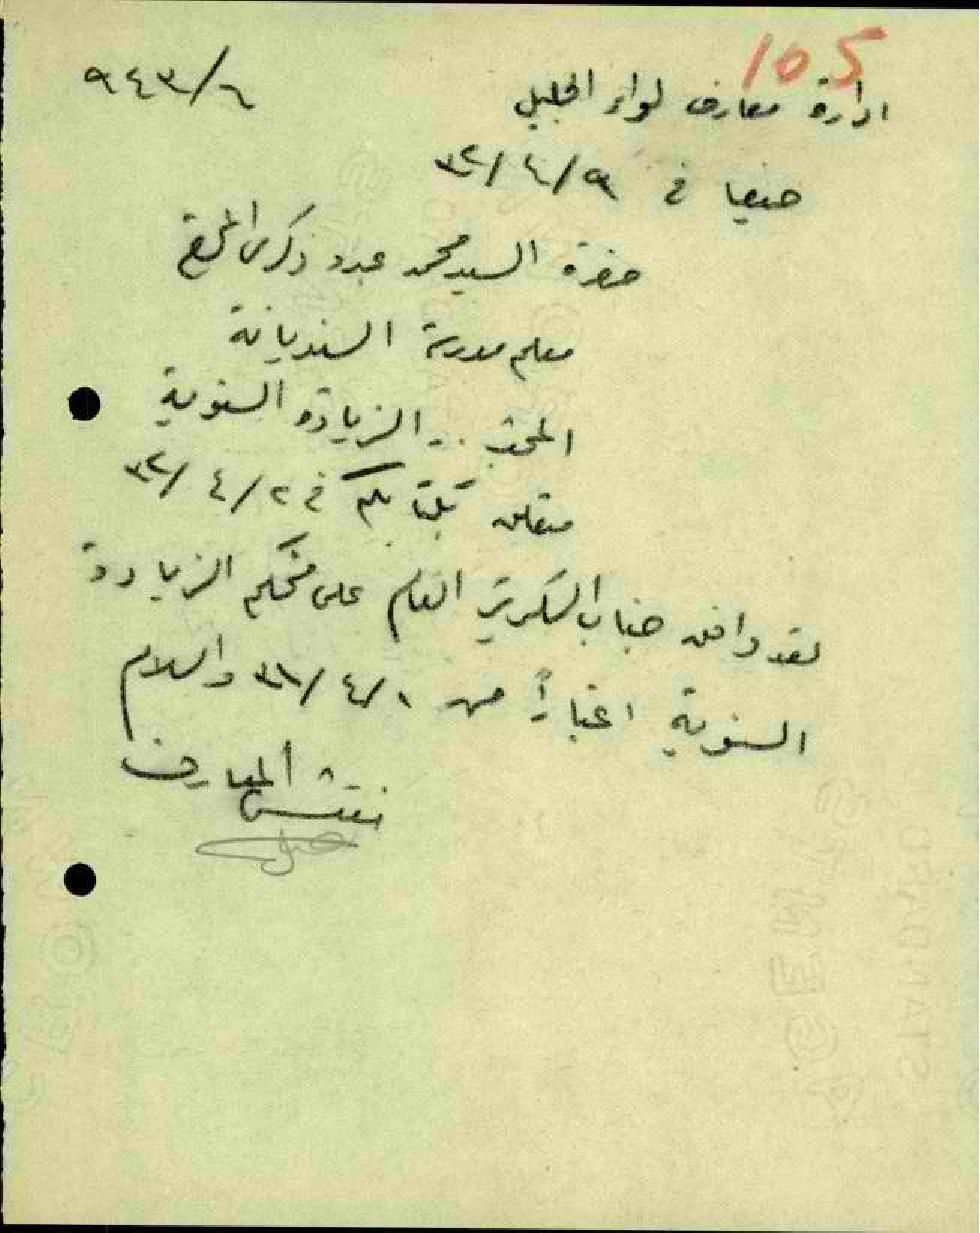 105
٩٤٣/٦
ادارة معارف لواء الجليل
حيفا في ٩/٤/٣٢
حضرة السيد محمد عبده زكري المحترم
معلم مدرسة السنديانة
المبحث .. الزيادة السنوية
متعلق بكتابكم في ٢/٤/٣٢
لقد وافق جناب السكرتير العام على منحكم الزيادة
السنوية اعتباراً من ١/٤/٣١ والسلام
مفتش المعارف